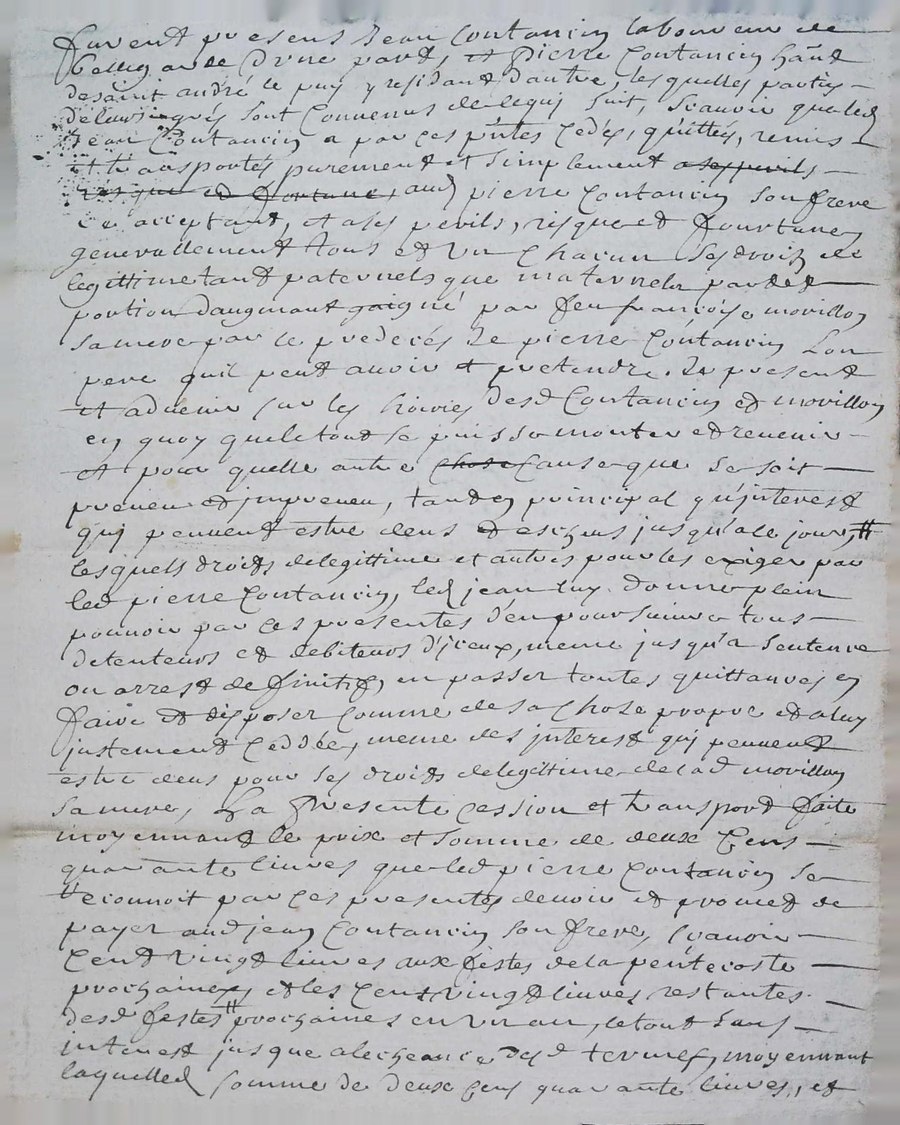 furent presens Jean Coutancin laboureur de
Bellegarde d'une part, et Pierre Coutancin habnt
de saint andré le puy y residant d'autre, lesquelles parties
de leurs grés sont convenus de ce qui suit, scavoir que led
Jean Coutancin a par ces pntes cedés, quittés, remis
et transportés purement et simplement a ses perils
risque et fortune, aud pierre Coutancin son frere
ce acceptant, et a ses perils, risque et fourtune,
generallement tous et un chacun ses droits de
legittime tant paternels que maternels part et
portion d'augmant gaigné par feu françoise morillon
sa mere par le predecés de pierre Coutancin son
pere qu'il peut avoir et pretendre, de present
et advenir sur les hoiries desd Coutancin et morillon
en quoy que le tout se puisse monter et revenir
et pour quelle autre chose cause que se soit
preveu et jmpreveu, tant en principal qu'jnterest
quj peuvent estre deus et escheus jusqu'a ce jour, #
lesquels droits de legittime et autres pour les exiger par
led pierre Coutancin, led jean luy donne plein
pouvoir par ces presentes d'en poursuivre tous
detenteurs et debiteurs d'jceux, meme jusqu'a sentence
ou arrest definitif, en passer toutes quittances en
faire et disposer comme de sa chose propre et a luy
justement ceddée, meme des jnterest quj peuvent
estre deus pour ses droits de legittime de lad morillon
sa mere, La presente cession et transport faite
moyennant le prix et somme de deux cens
quarante livres que led pierre Coutancin se
reconnoit par ces presentes devoir et promet de
payer aud jean Coutancin son frere, scavoir
cent vingt livres aux festes de la pentecoste
prochaines, et les cent vingt livres restantes
desd festes # prochaines en un an, le tout sans
jnterest jusque a lecheance desd termes, moyennant
laquelled somme de deux cens quarante livres, et